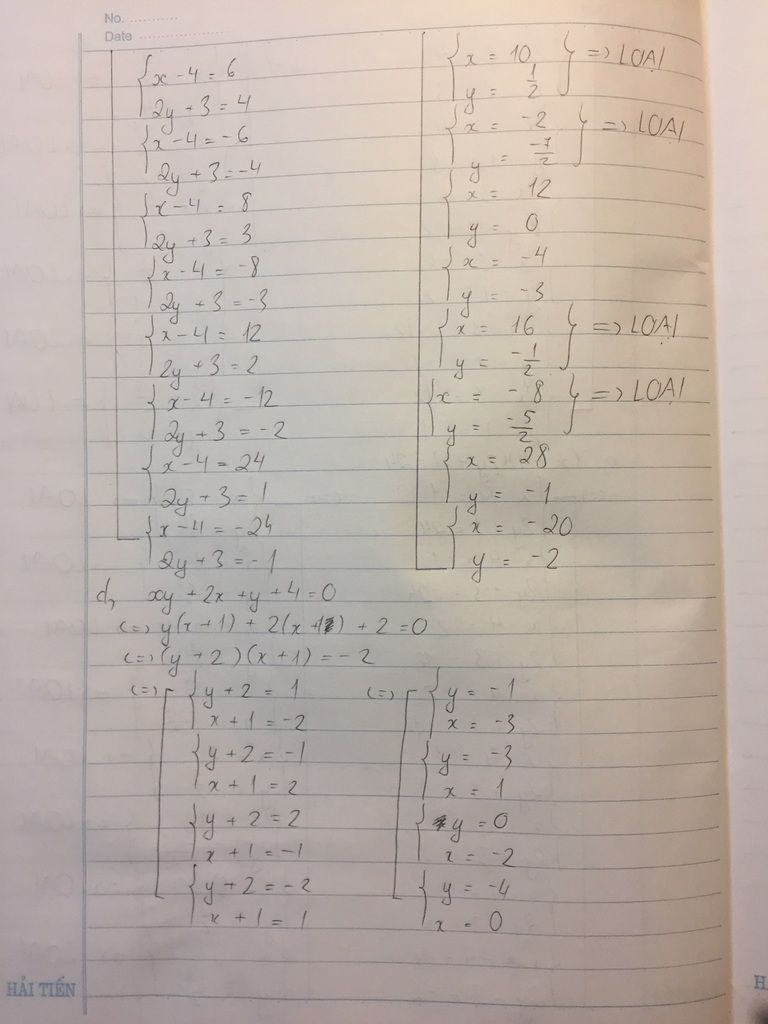 No. ..................
Date ..................
x - 4 = 6
2y + 3 = 4
x - 4 = -6
2y + 3 = -4
x - 4 = 8
2y + 3 = 3
x - 4 = -8
2y + 3 = -3
x - 4 = 12
2y + 3 = 2
x - 4 = -12
2y + 3 = -2
x - 4 = 24
2y + 3 = 1
x - 4 = -24
2y + 3 = -1
x = 10
y = 1/2 => LOẠI
x = -2
y = -7/2 => LOẠI
x = 12
y = 0
x = -4
y = -3
x = 16
y = -1/2 => LOẠI
x = -8
y = -5/2 => LOẠI
x = 28
y = -1
x = -20
y = -2
d, xy + 2x + y + 4 = 0
<=> y(x + 1) + 2(x + 1) + 2 = 0
<=> (y + 2)(x + 1) = -2
<=> y + 2 = 1
x + 1 = -2
y + 2 = -1
x + 1 = 2
y + 2 = 2
x + 1 = -1
y + 2 = -2
x + 1 = 1
<=> y = -1
x = -3
y = -3
x = 1
y = 0
x = -2
y = -4
x = 0
HẢI TIẾN